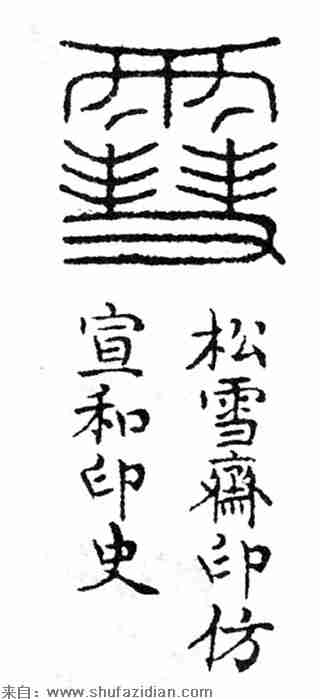 雪
松雪齋印仿
宣和印史
来自：www.shufazidian.com